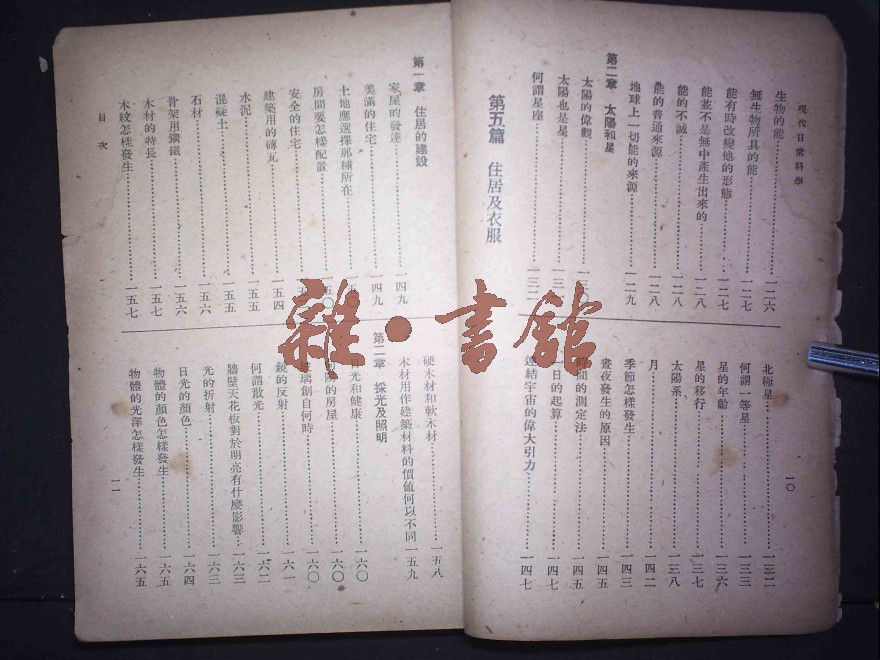 現代日常科學
生物的能 一二六
無生物所具的能 一二七
能有時改變他的形態 一二七
能並不是無中產生出來的 一二八
能的不滅 一二八
能的普通來源 一二八
地球上一切能的來源 一二九
第二章 太陽和星
太陽的偉觀
太陽也是星
何謂星座 一三二
第五篇 住居及衣服
北極星 一三二
何謂一等星 一三三
星的年齡 一三六
星的移行 一三七
太陽系 一三八
月 一四二
季節怎樣發生 一四三
晝夜發生的原因 一四五
時間的測定法 一四五
日的起算 一四七
連結宇宙的偉大引力 一四七
一〇
第一章 住居的建設
家屋的發達 一四九
美滿的住宅 一四九
土地應選擇那種所在 一五〇
房間要怎樣配置 一五〇
安全的住宅
建築用的磚瓦 一五四
水泥 一五五
混凝土 一五五
石材 一五六
骨架用鋼鐵 一五六
木材的特長 一五七
木紋怎樣發生 一五七
目次
硬木材和軟木材 一五八
木材用作建築材料的價値何以不同 一五九
第二章 採光及照明
日光和健康 一六〇
的房屋 一六〇
玻璃創自何時 一六〇
鏡的反射 一六一
何謂散光 一六二
牆壁天花板對於明亮有什麼影響 一六三
光的折射 一六三
日光的顏色 一六四
物體的顏色怎樣發生 一六五
物體的光澤怎樣發生 一六五
一一
雜·書館